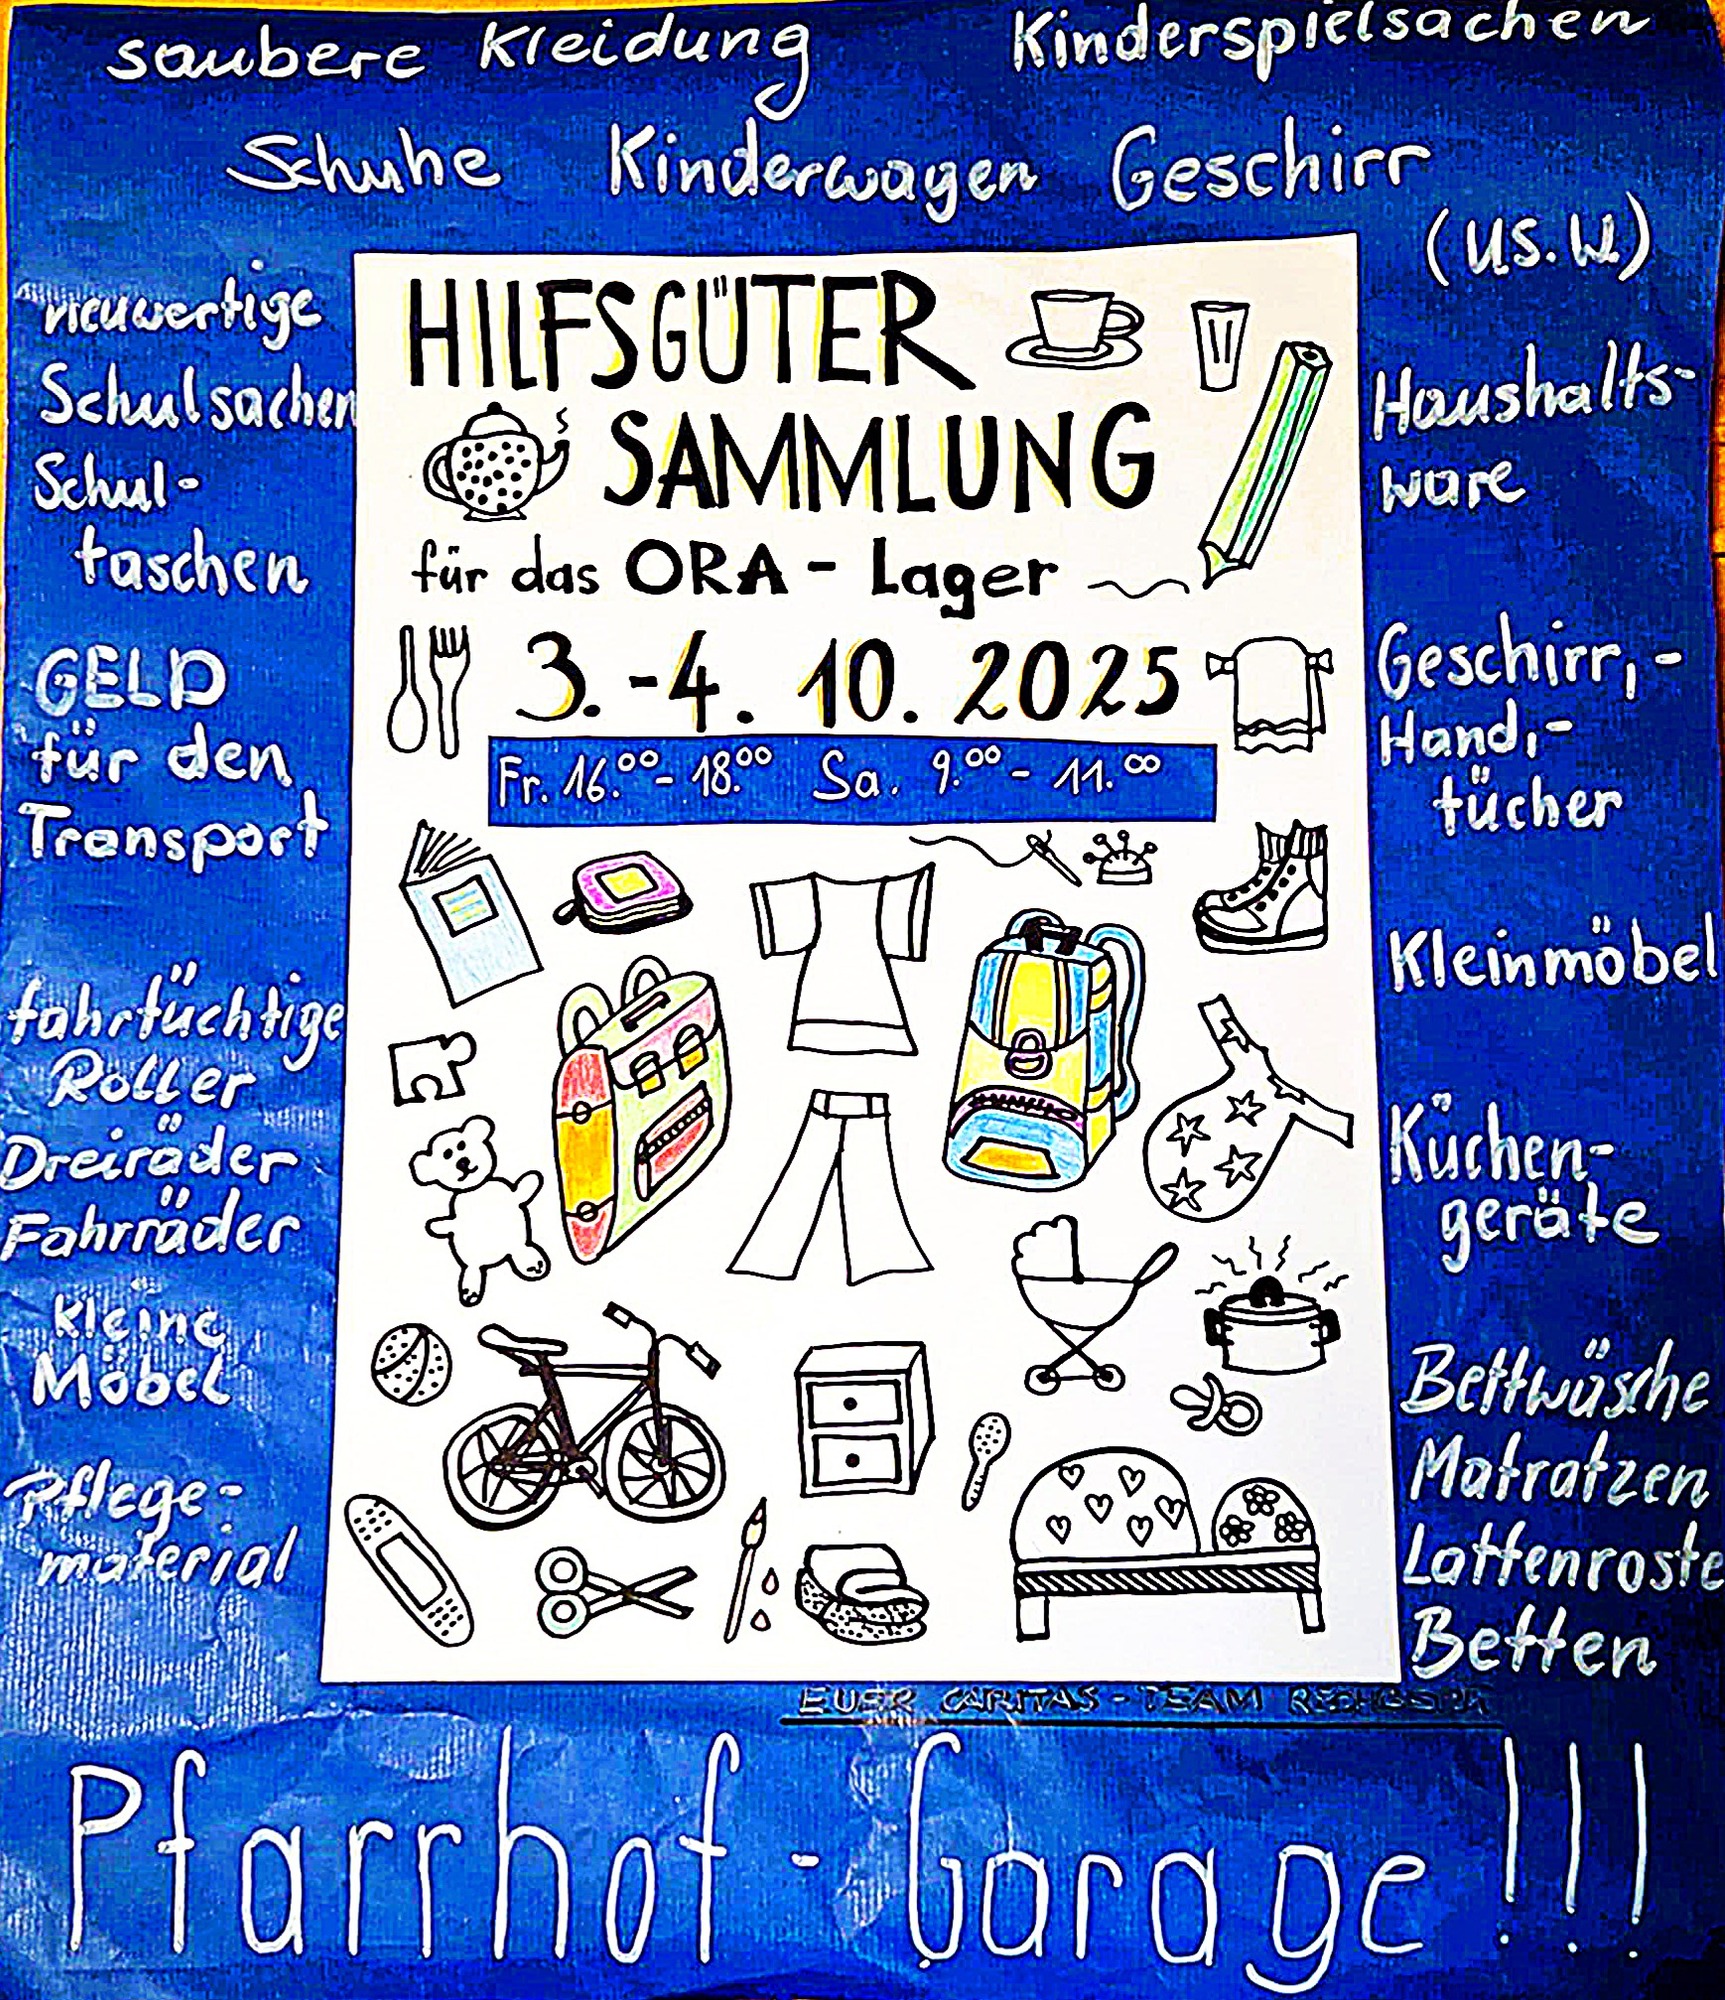 saubere Kleidung Kinderspielsachen
Schuhe Kinderwagen Geschirr
(U.S.W.)
neuwertige
Schulsachen
Schul-
taschen
GELD
für den
Transport
fahrtüchtige
Roller
Dreiräder
Fahrräder
kleine
Möbel
Pflege-
material
HILFSGÜTER
SAMMLUNG
für das ORA - Lager
3.-4. 10. 2025
Fr. 16.⁰⁰- 18.⁰⁰ Sa. 9.⁰⁰- 11.⁰⁰
Haushalts-
ware
Geschirr,-
Hand,-
tücher
Kleinmöbel
Küchen-
geräte
Bettwäsche
Matratzen
Lattenroste
Betten
EUER CARITAS - TEAM
Pfarrhof - Garage!!!